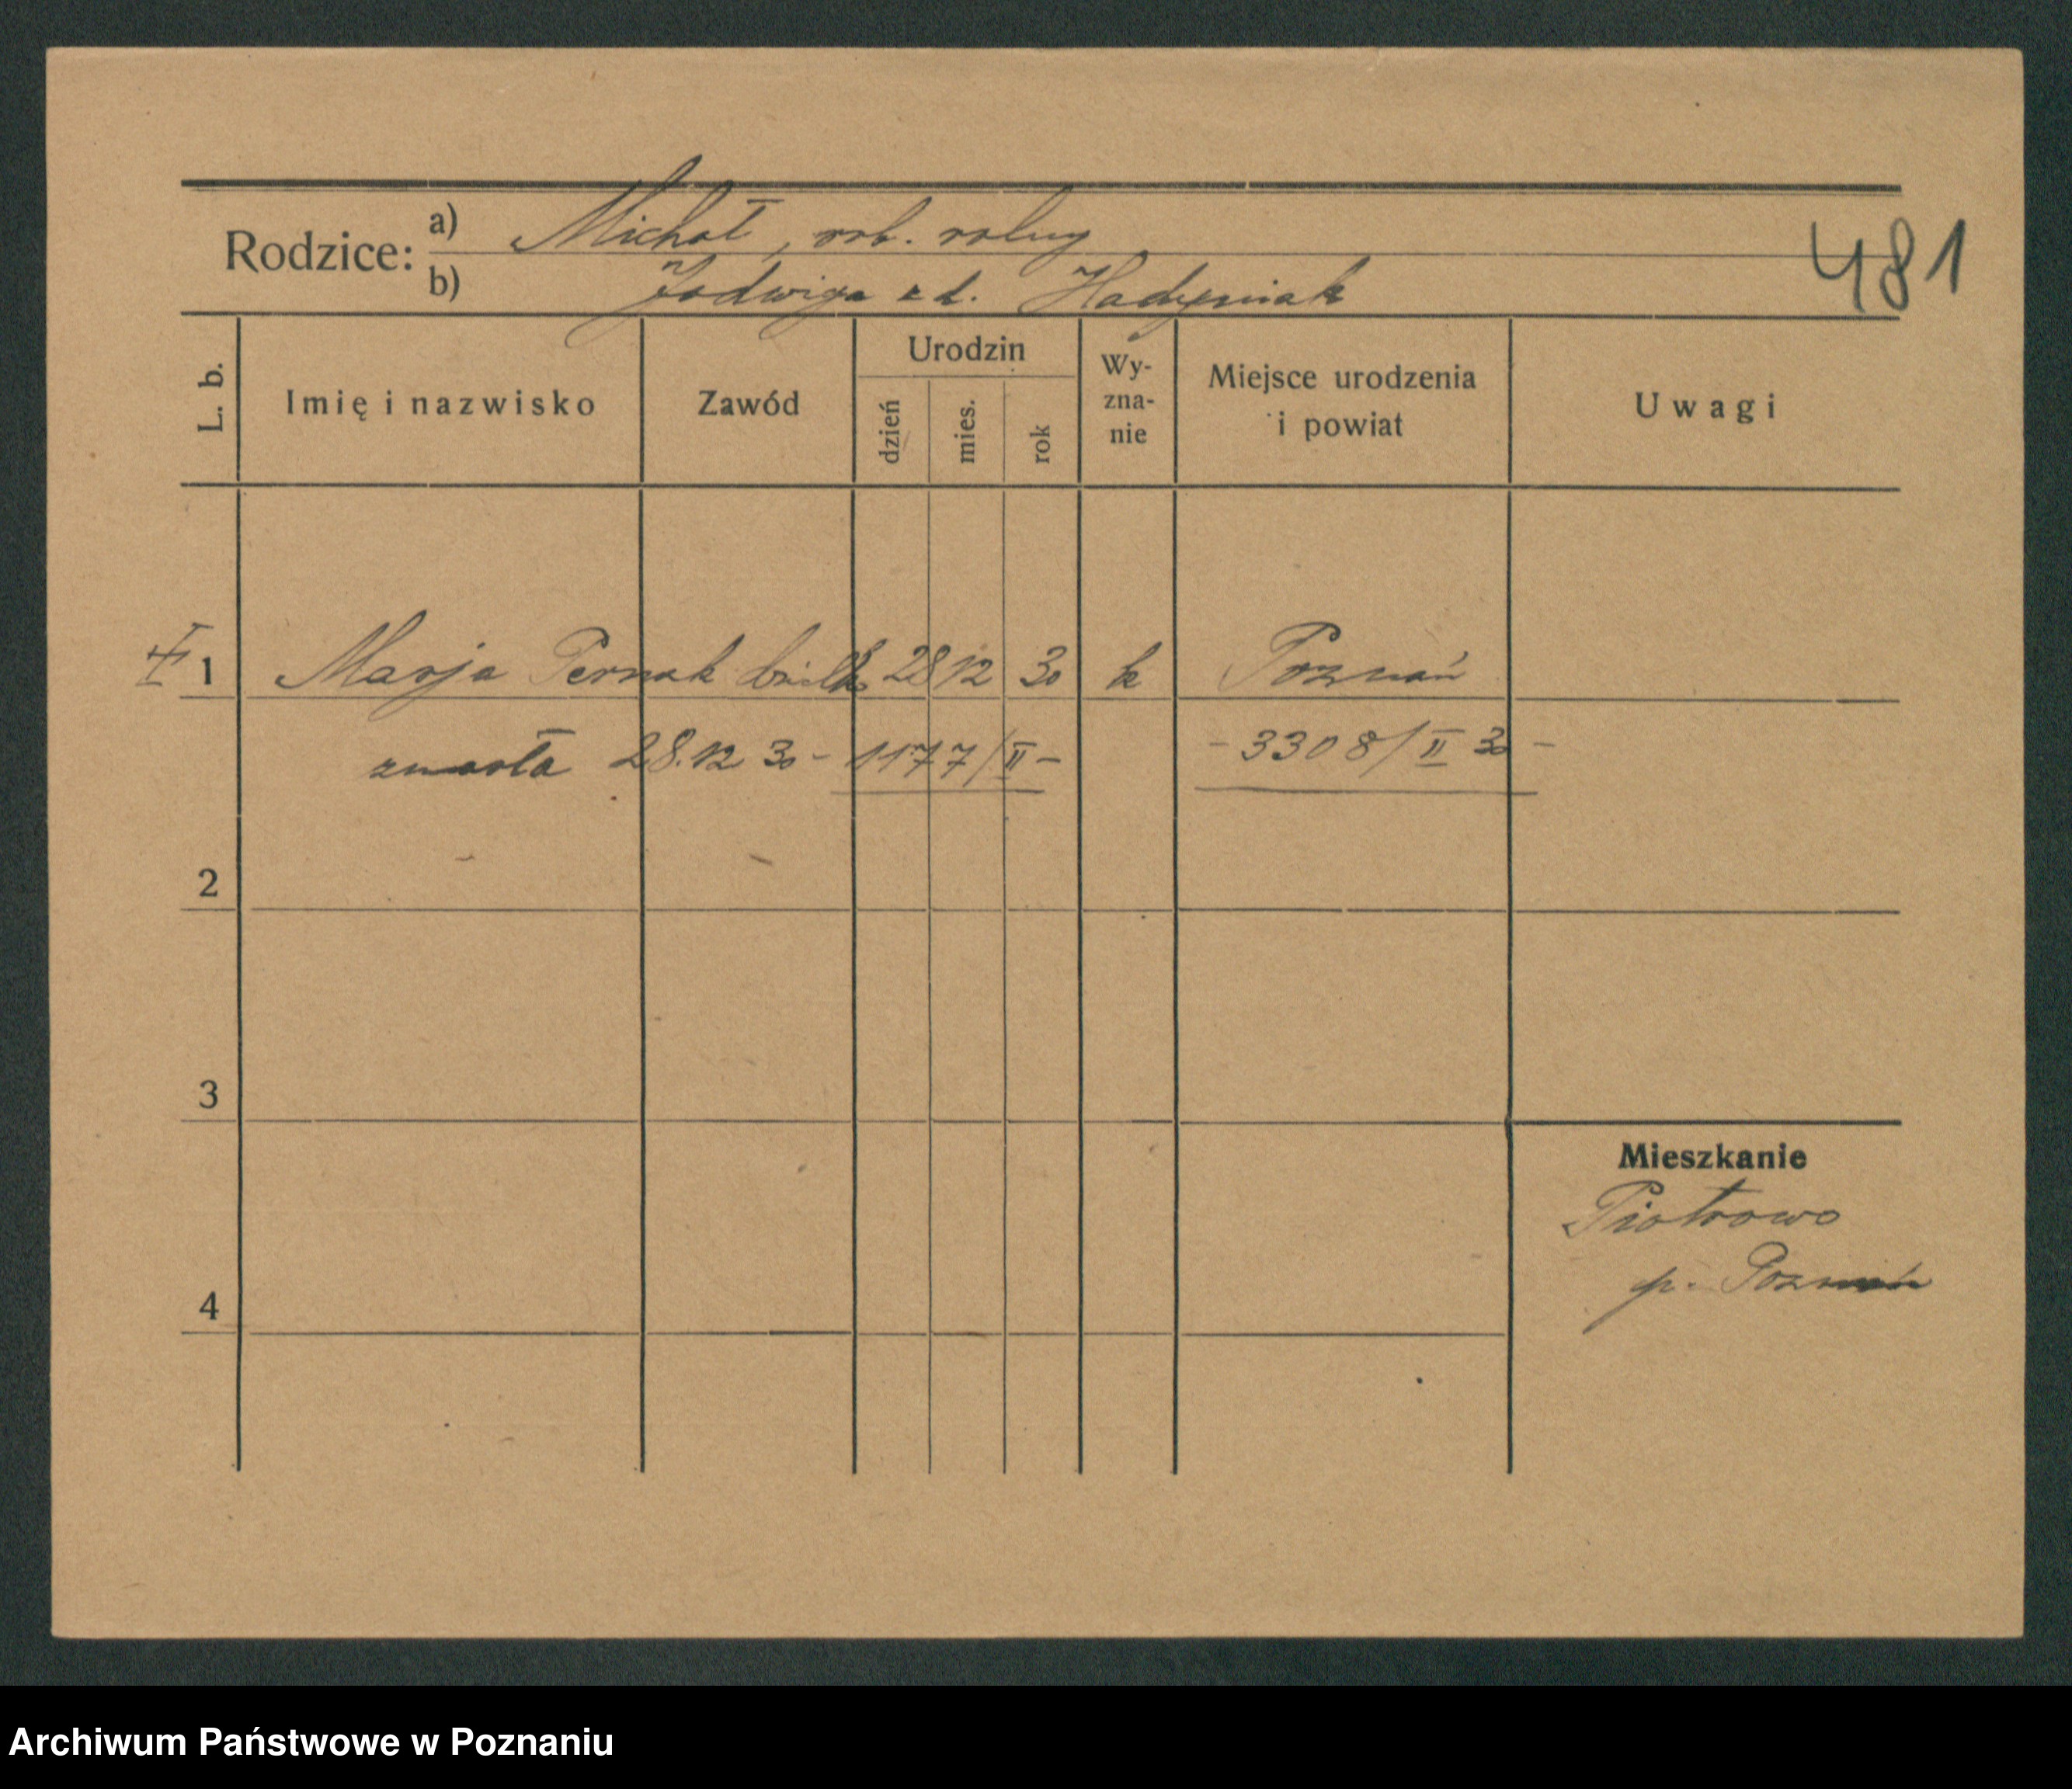 Rodzice: a) Michał, rob. rolny
481
b) Jadwiga z d.
L. b. Imię i nazwisko Zawód Urodzin dzień mies. rok Wy- zna- nie Miejsce urodzenia i powiat Uwagi
1 Marja Pernak 28 12 30 k Poznań
zmarła 28.12 30 - 1177/II - - 3308/II 30 -
2
3
Mieszkanie
Piotrowo
p. Poznań
4
Archiwum Państwowe w Poznaniu